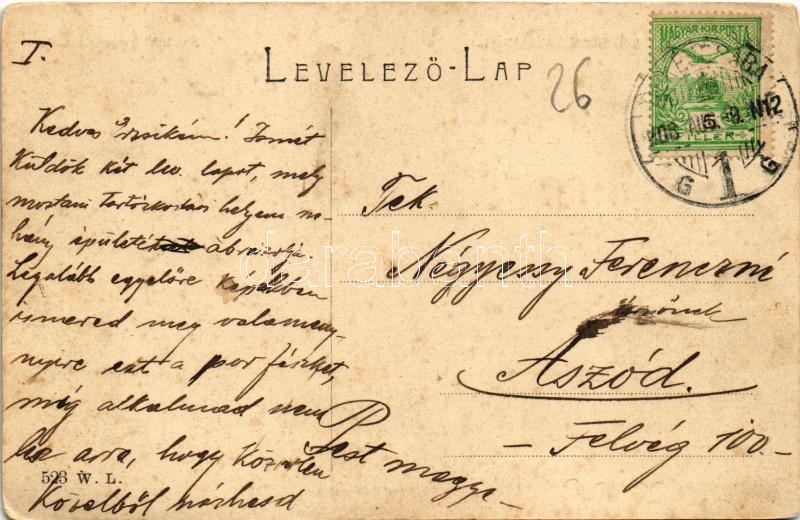 I.
LEVELEZŐ-LAP
26
MAGYAR KIR. POSTA
906 AUG. 9. N12
FILLÉR
1
G G
Kedves Erzsikém! Ismét
Küldök két lev. lapot, mely
mostani tartózkodási helyem né-
hány épületét ábrázolja.
Legalább egyelőre képekben
ismered meg valameny-
nyire ezt a por fészket,
míg alkalmad nem
lesz arra, hogy közvetlen
közelből nézhesd
523 W. L.
Tek.
Négyessy Ferenczné
úrnőnek
Aszód.
Pest megye-
- Felvég 100.-
darabanth